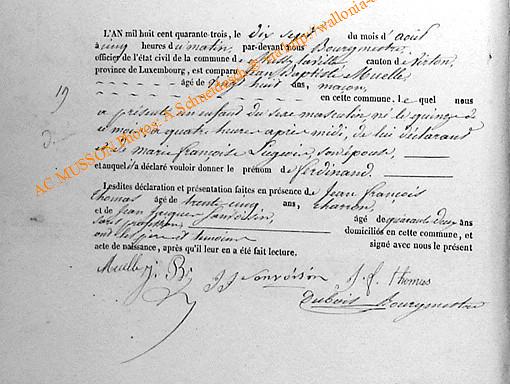 L'AN mil huit cent quarante-trois, le dix sept du mois d'août
à cinq heures du matin, par-devant nous Bourgmestre
officier de l'état civil de la commune de canton de Virton,
province de Luxembourg, est comparu Jean Baptiste Muelle
âgé de vingt huit ans, maçon,
en cette commune, Le quel nous
19
a présenté un enfant du sexe masculin né le quinze
ce mois à quatre heures après midi, de lui déclarant
et de marie françoise son épouse,
et auquel il a déclaré vouloir donner le prénom de ferdinand.
Lesdites déclaration et présentation faites en présence de Jean françois
thomas âgé de trente cinq ans, charron,
et de Jean Jacques âgé de quarante deux ans
sans profession, domiciliés en cette commune, et
ont les père et témoins signé avec nous le présent
acte de naissance, après qu'il leur en a été fait lecture.
Muelle J. B.
J. f. thomas
Dubois Bourgmestre
AC MUSSON Photos: A.Schneidesch